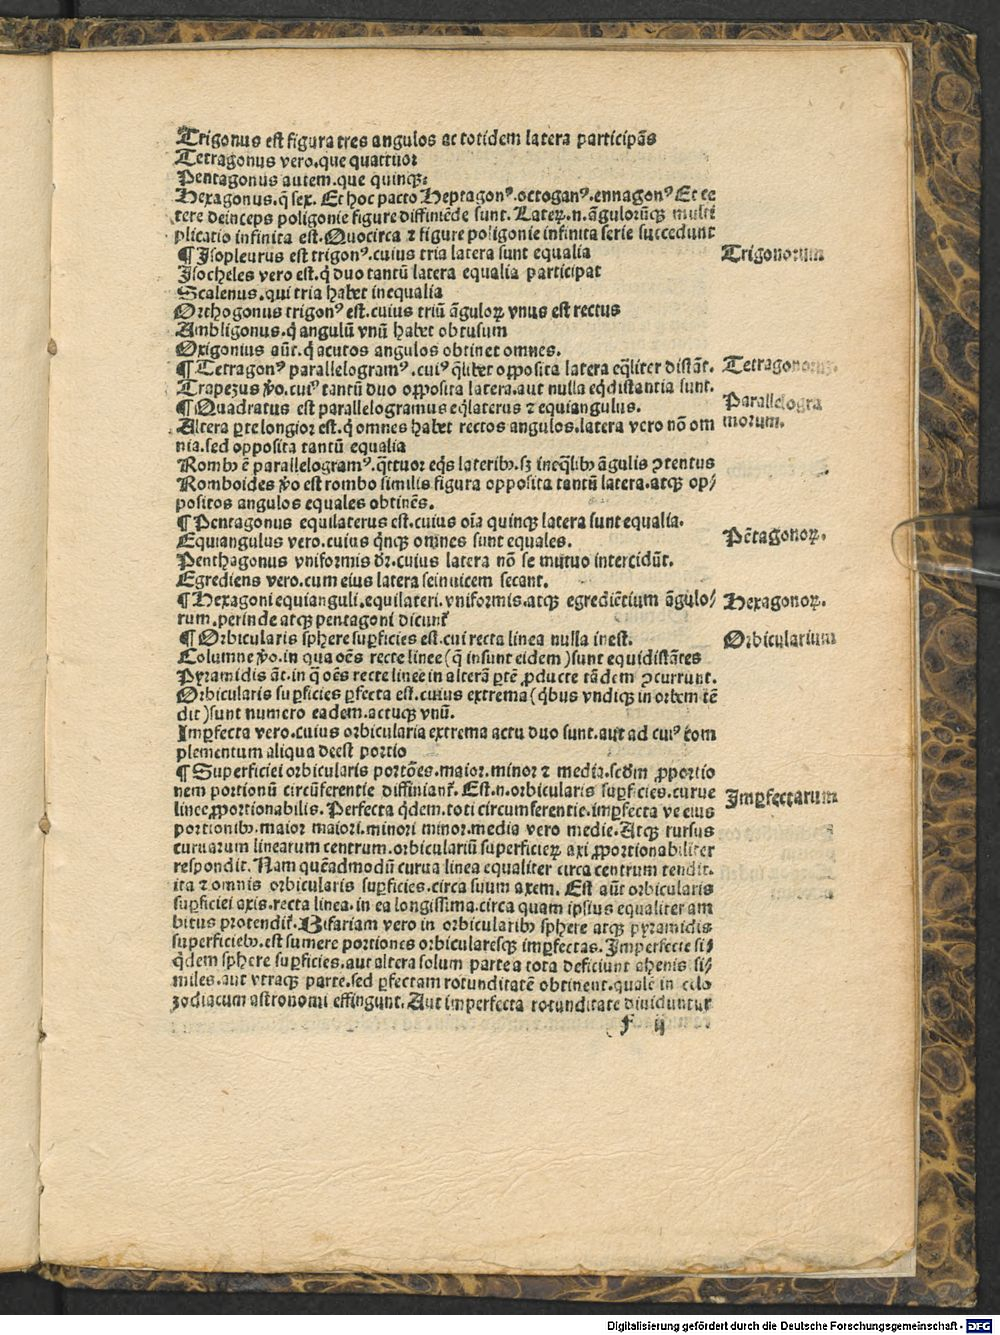 Trigonus est figura tres angulos ac totidem latera participãs
Tetragonus vero.que quattuor
Pentagonus autem.que quinqꝫ
Hexagonus.q̃ sex. Et hoc pacto Heptagonꝰ.octoganꝰ.ennagonꝰ Et ce
tere deinceps poligonie figure diffiniẽde sunt. Lateꝝ.n.ãgulorũqꝫ multi
plicatio infinita est. Quocirca ⁊ figure poligonie infinita serie succedunt
¶ Isopleurus est trigonꝰ.cuius tria latera sunt equalia
Trigonorum
Isocheles vero est.q̃ duo tantũ latera equalia participat
Scalenus.qui tria habet inequalia
Orthogonus trigonꝰ est.cuius triũ ãguloꝝ vnus est rectus
Ambligonus.q̃ angulũ vnũ habet obtusum
Oxigonius aũt.q̃ acutos angulos obtinet omnes.
¶ Tetragonꝰ parallelogramꝰ.cuiꝰ q̃libet opposita latera eq̃liter distãt.
Tetragonoruꝫ.
Trapezus ṽo.cuiꝰ tantũ duo opposita latera.aut nulla eq̃distantia sunt.
¶ Quadratus est parallelogramus eq̃laterus ⁊ equiangulus.
Parallelogra
morum.
Altera ꝑte longior est.q̃ omnes habet rectos angulos.latera vero nõ om
nia.sed opposita tantũ equalia
Rombꝰ ẽ parallelogramꝰ.q̃ttuor eq̃s lateribꝰ.sꝫ ineq̃libꝰ ãgulis ꝯtentus
Romboides ṽo est rombo similis figura opposita tantũ latera.atqꝫ op/
positos angulos equales obtinẽs.
¶ Pentagonus equilaterus est.cuius oĩa quinqꝫ latera sunt equalia.
Equiangulus vero.cuius q̃nqꝫ omnes sunt equales.
Pẽtagonoꝝ.
Penthagonus vniformis dr̃.cuius latera nõ se mutuo intercidũt.
Egrediens vero.cum eius latera seinuicem secant.
¶ Hexagoni equianguli.equilateri.vniformis.atqꝫ egrediẽtium ãgulo/
Hexagonoꝝ.
rum.perinde atqꝫ pentagoni dicunt̃
¶ Orbicularis sphere suꝑficies est.cui recta linea nulla inest.
Orbicularium
Columne ṽo.in qua oẽs recte linee (q̃ insunt eidem) sunt equidistãtes
Pyramidis ãt.in q̃ oẽs recte linee in alterã ꝑtẽ ꝓducte tãdem ꝯcurrunt.
Orbicularis suꝑficies ꝑfecta est.cuius extrema (q̃bus vndiqꝫ in orbem tẽ
dit) sunt numero eadem.actuqꝫ vnũ.
Imꝑfecta vero.cuius orbicularia extrema actu duo sunt.aut ad cuiꝰ com
plementum aliqua deest portio
¶ Superficiei orbicularis portões.maior.minor ⁊ media.scðm ꝓportio
nem portionũ circũferentie diffiniant̃. Est.n.orbicularis suꝑficies.curue
Imꝑfectarum
linee ꝓportionabilis. Perfecta q̃dem.toti circumferentie.imꝑfecta ve eius
portionibꝰ.maior maiori.minori minor.media vero medie. Atqꝫ rursus
curuarum linearum centrum.orbiculariũ superficieꝝ axi ꝓportionabiliter
respondit. Nam quẽadmodũ curua linea equaliter circa centrum tendit.
ita ⁊ omnis orbicularis suꝑficies.circa suum axem. Est aũt orbicularis
suꝑficiei axis.recta linea.in ea longissima.circa quam ipsius equaliter am
bitus protendit̃. Bifariam vero in orbicularibꝰ sphere atqꝫ pyramidis
superficiebꝰ.est sumere portiones orbicularesqꝫ imꝑfectas. Imperfecte si/
q̃dem sphere suꝑficies.aut altera solum parte a tota deficiunt ahenis si/
miles.aut vtraqꝫ parte.sed ꝑfectam rotunditatẽ obtinent.qualẽ in celo
zodiacum astronomi effingunt. Aut imperfecta rotunditate diuiduntur
F ij
Digitalisierung gefördert durch die Deutsche Forschungsgemeinschaft - DFG